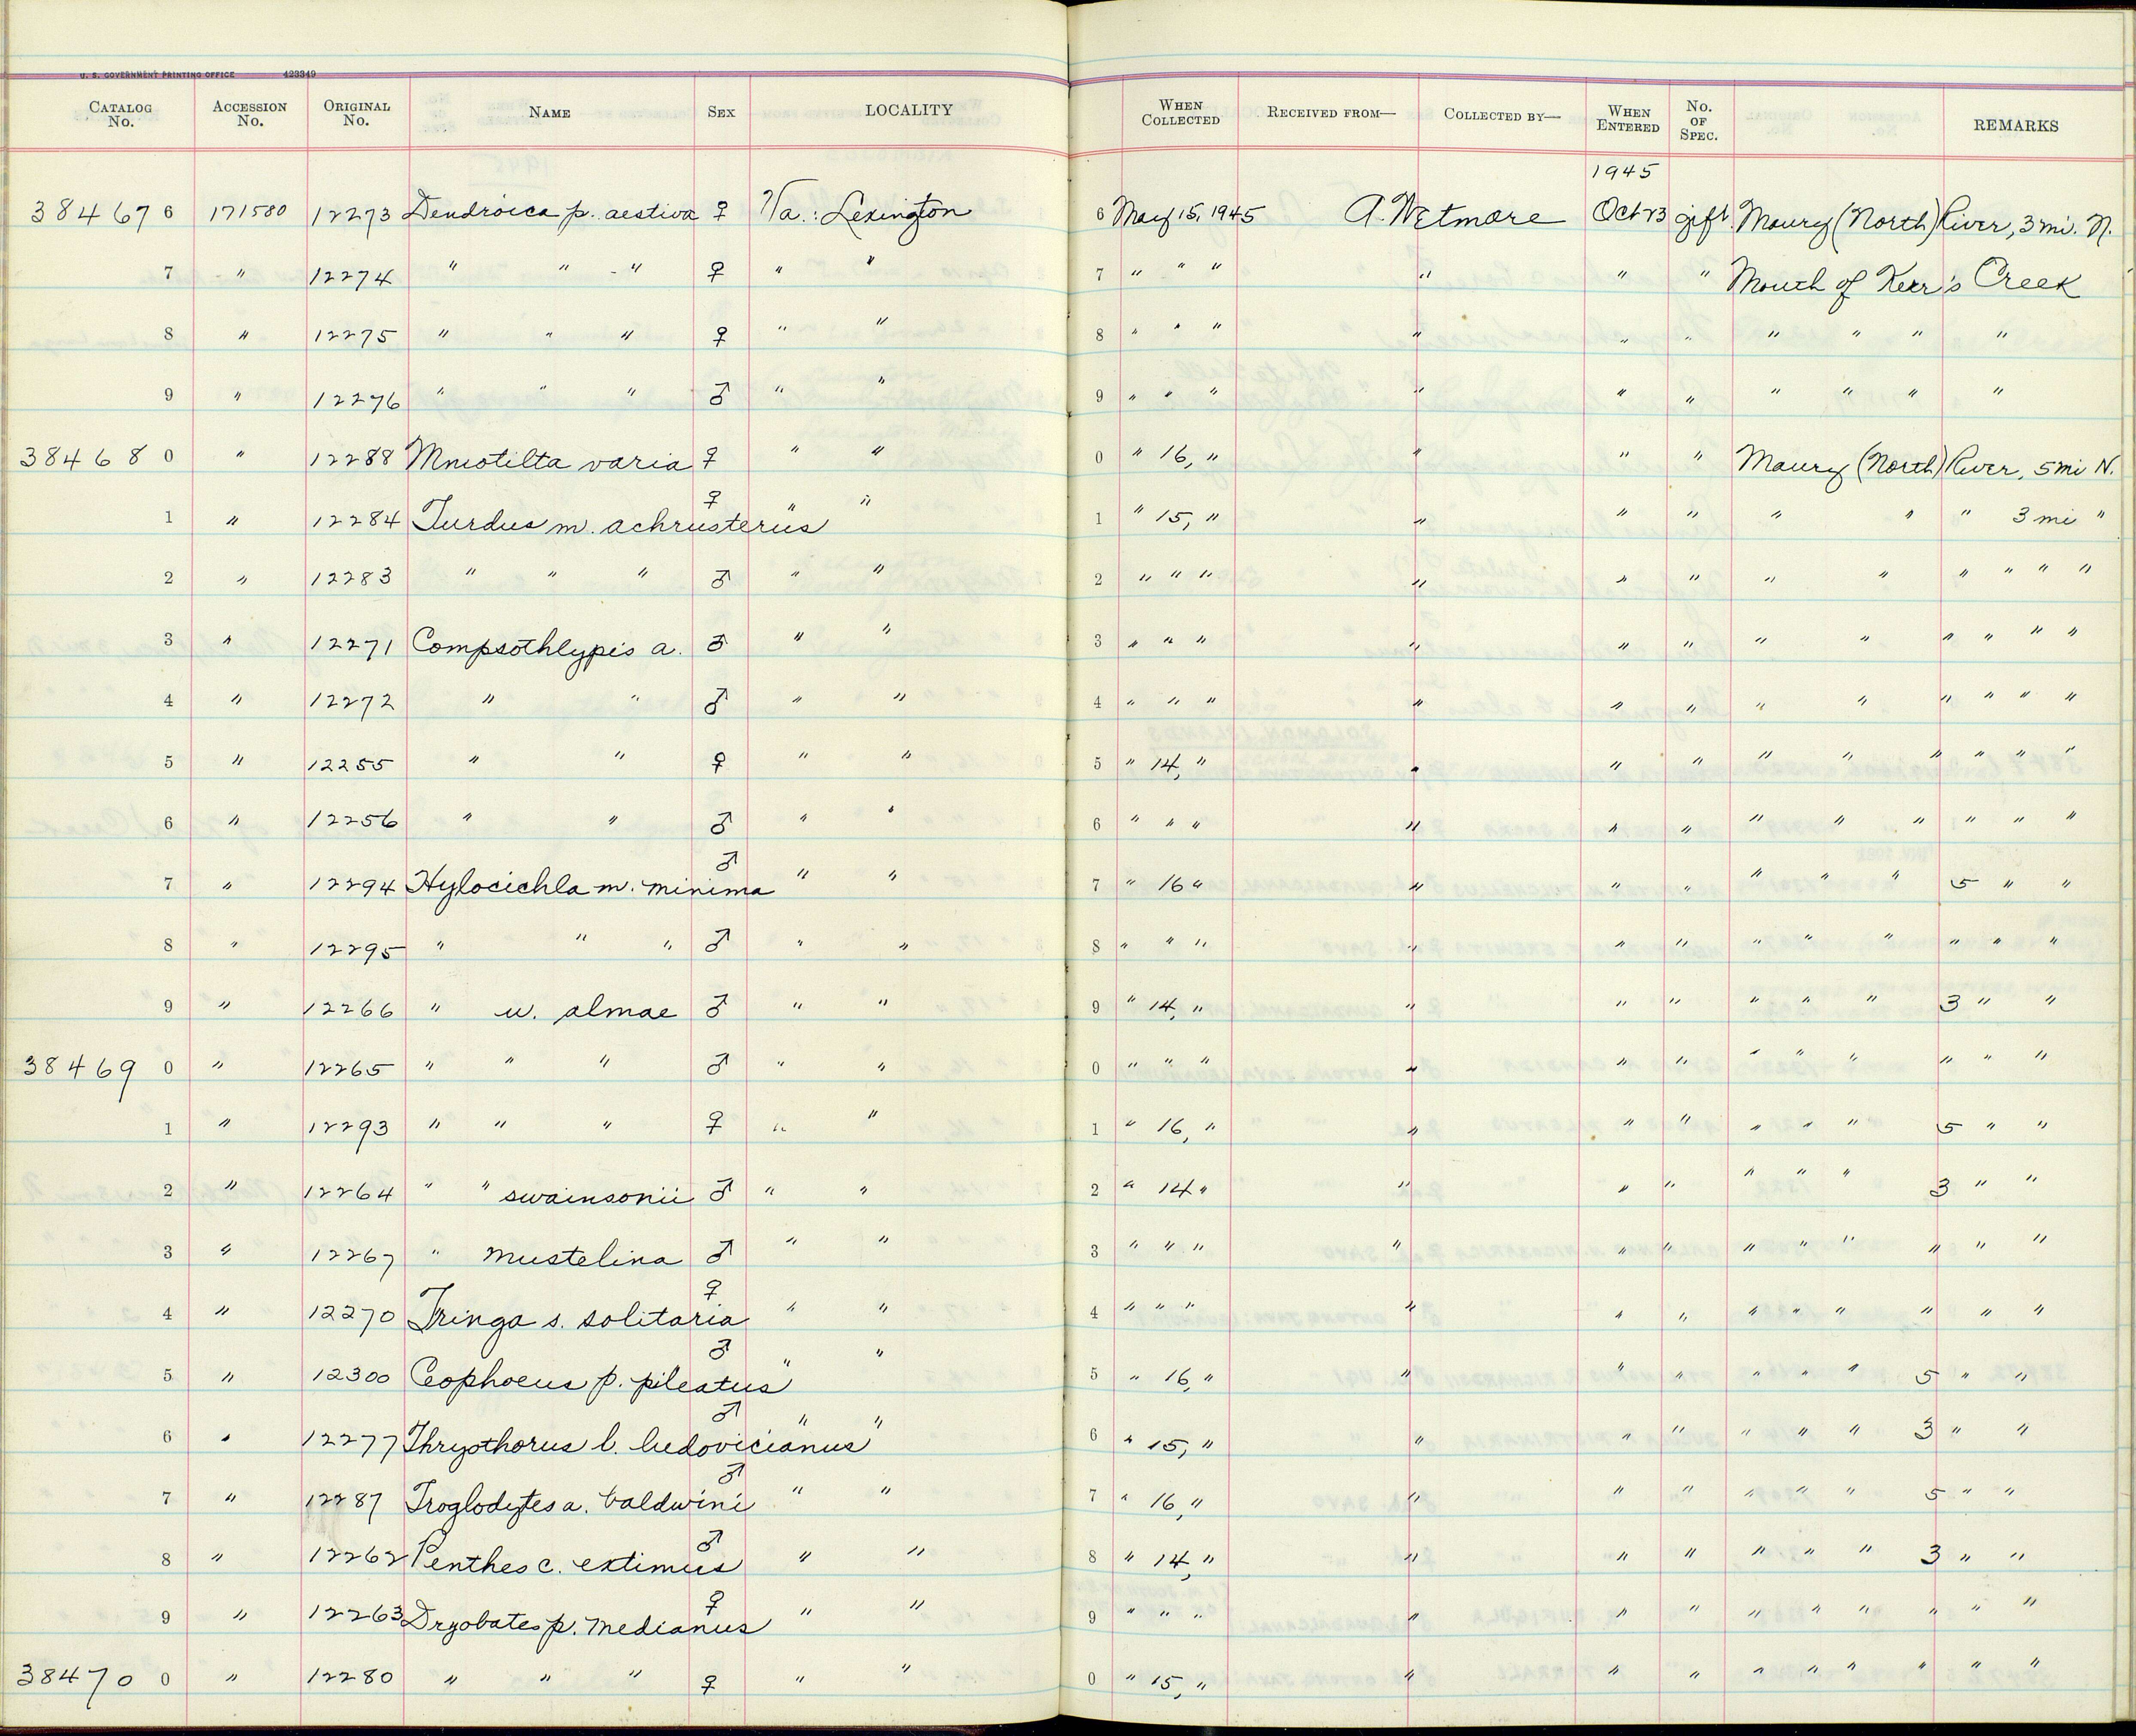 U. S. GOVERNMENT PRINTING OFFICE 423349
CATALOG No. ACCESSION No. ORIGINAL No. NAME SEX LOCALITY WHEN COLLECTED RECEIVED FROM— COLLECTED BY— WHEN ENTERED No. OF SPEC. REMARKS
1945
38467 6 171580 12273 Dendroica p. aestiva ♀ Va.: Lexington 6 May 15, 1945 A. Wetmore Oct 23 gift. Maury (North) River, 3 mi. N.
7 " 12274 " " " ♀ " " 7 " " " " " " Mouth of Kerr's Creek
8 " 12275 " " " ♀ " " 8 " " " " " " " " " "
9 " 12276 " " " ♂ " " 9 " " " " " " " " " "
38468 0 " 12288 Mniotilta varia ♀ " " 0 " 16, " " " " Maury (North) River, 5 mi N.
1 " 12284 Turdus m. achrusterus ♀ " " 1 " 15, " " " " " " " 3 mi "
2 " 12283 " " " ♂ " " 2 " " " " " " " " " " " "
3 " 12271 Compsothlypis a. ♂ " " 3 " " " " " " " " " " " "
4 " 12272 " " ♂ " " 4 " " " " " " " " " " " "
5 " 12255 " " ♀ " " 5 " 14, " " " " " " " " " "
6 " 12256 " " ♂ " " 6 " " " " " " " " " " " "
7 " 12294 Hylocichla m. minima ♂ " " 7 " 16 " " " " " " " 5 " "
8 " 12295 " " " ♂ " " 8 " " " " " " " " " " " "
9 " 12266 " u. almae ♂ " " 9 " 14, " " " " " " " 3 " "
38469 0 " 12265 " " " ♂ " " 0 " " " " " " " " " " " "
1 " 12293 " " " ♀ " " 1 " 16, " " " " " " " 5 " "
2 " 12264 " " swainsonii ♂ " " 2 " 14 " " " " " " " 3 " "
3 " 12267 " mustelina ♂ " " 3 " " " " " " " " " " " "
4 " 12270 Tringa s. solitaria ♀ " " 4 " " " " " " " " " " " "
5 " 12300 Ceophoeus p. pileatus ♂ " " 5 " 16, " " " " " " " 5 " "
6 " 12277 Thryothorus l. ludovicianus ♂ " " 6 " 15, " " " " " " " 3 " "
7 " 12287 Troglodytes a. baldwini ♂ " " 7 " 16, " " " " " " " 5 " "
8 " 12262 Penthes c. extimus ♂ " " 8 " 14, " " " " " " " 3 " "
9 " 12263 Dryobates p. medianus ♀ " " 9 " " " " " " " " " " " "
38470 0 " 12280 " " " ♀ " " 0 " 15, " " " " " " " " " "